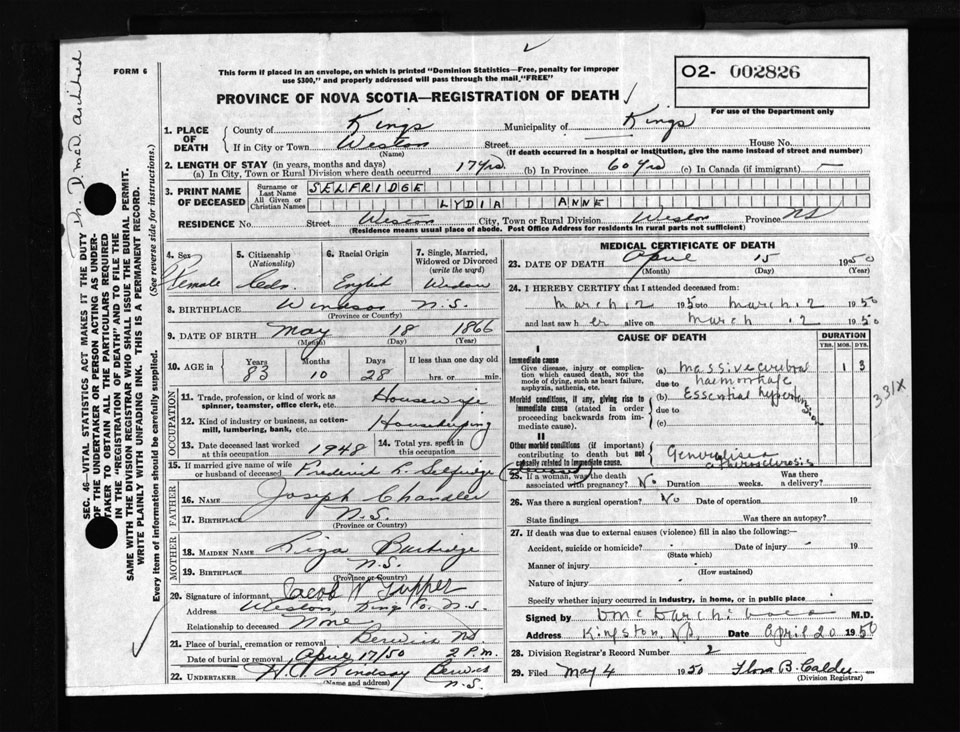 ✓
FORM 6
This form if placed in an envelope, on which is printed "Dominion Statistics—Free, penalty for improper
use $300," and properly addressed will pass through the mail "FREE"
O2- 002826
For use of the Department only
PROVINCE OF NOVA SCOTIA—REGISTRATION OF DEATH ✓
1. PLACE OF DEATH
County of Kings Municipality of Kings
If in City or Town Weston Street House No.
(Name) (If death occurred in a hospital or institution, give the name instead of street and number)
2. LENGTH OF STAY (in years, months and days)
(a) In City, Town or Rural Division where death occurred 17 yrs (b) In Province 60 yrs (c) In Canada (if immigrant) —
3. PRINT NAME OF DECEASED
Surname or Last Name SELFRIDGE
All Given or Christian Names LYDIA ANNE
RESIDENCE No. Street Weston City, Town or Rural Division Weston Province NS
(Residence means usual place of abode. Post Office Address for residents in rural parts not sufficient)
4. Sex Female
5. Citizenship (Nationality)
6. Racial Origin English
7. Single, Married, Widowed or Divorced (write the word) Widow
8. BIRTHPLACE Windsor N.S.
(Province or Country)
9. DATE OF BIRTH May 18 1866
(Month) (Day) (Year)
10. AGE in Years Months Days If less than one day old
83 10 28 hrs. or min.
OCCUPATION
11. Trade, profession, or kind of work as spinner, teamster, office clerk, etc. Housewife
12. Kind of industry or business, as cotton-mill, lumbering, bank, etc. Housekeeping
13. Date deceased last worked at this occupation 1948 14. Total yrs. spent in this occupation
15. If married give name of wife or husband of deceased Frederick L. Selfridge (deceased)
FATHER
16. NAME Joseph Chandler
17. BIRTHPLACE N.S.
(Province or Country)
MOTHER
18. MAIDEN NAME Liza
19. BIRTHPLACE N.S.
(Province or Country)
20. Signature of informant Jacob W Tupper
Address Weston, Kings Co. N.S.
Relationship to deceased None
21. Place of burial, cremation or removal Berwick NS
Date of burial or removal April 17/50 2 P.M.
22. UNDERTAKER Lindsay Berwick N.S.
(Name and address)
MEDICAL CERTIFICATE OF DEATH
23. DATE OF DEATH April 15 1950
(Month) (Day) (Year)
24. I HEREBY CERTIFY that I attended deceased from:
March 12 1950 to March 12 1950
and last saw her alive on March 12 1950
CAUSE OF DEATH
DURATION
YRS. MOS. DYS.
I
Immediate cause
Give disease, injury or complication which caused death, not the mode of dying, such as heart failure, asphyxia, asthenia, etc.
(a) Massive cerebral haemorrhage 1 3
due to
Morbid conditions, if any, giving rise to immediate cause (stated in order proceeding backwards from immediate cause).
(b) Essential hypertension
due to
(c)
331X
II
Other morbid conditions (if important) contributing to death but not causally related to immediate cause.
Generalised atherosclerosis
25. If a woman, was the death associated with pregnancy? No Duration weeks. Was there a delivery?
26. Was there a surgical operation? No Date of operation 19
State findings Was there an autopsy?
27. If death was due to external causes (violence) fill in also the following:—
Accident, suicide or homicide? Date of injury 19
(State which)
Manner of injury
(How sustained)
Nature of injury
Specify whether injury occurred in industry, in home, or in public place
Signed by D McD Archibald M.D.
Address Kingston, N.S. Date April 20 1950
28. Division Registrar's Record Number 2
29. Filed May 4 1950 Flora B. Calder
(Division Registrar)
Dr. D. McD. Archibald
SEC. 46—VITAL STATISTICS ACT MAKES IT THE DUTY
OF THE UNDERTAKER OR PERSON ACTING AS UNDER-
TAKER TO OBTAIN ALL THE PARTICULARS REQUIRED
IN THE "REGISTRATION OF DEATH" AND TO FILE THE
SAME WITH THE DIVISION REGISTRAR WHO SHALL ISSUE THE BURIAL PERMIT.
WRITE PLAINLY WITH UNFADING INK. THIS IS A PERMANENT RECORD.
Every item of information should be carefully supplied. (See reverse side for instructions.)